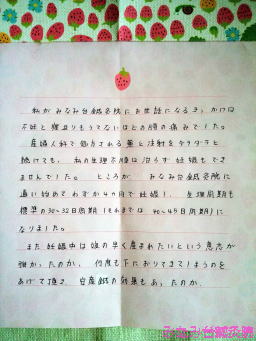 私がみなみ台鍼灸院にお世話になるきっかけは
不妊と寝返りもうてないほどの腰の痛みでした。
産婦人科で処方される薬と注射をダラダラと
続けても、私の生理不順は治らず妊娠もでき
ませんでした。ところが みなみ台鍼灸院に
通い始めてわずか4ヵ月で妊娠し、生理周期も
標準の30〜32日周期(それまでは40〜45日周期)に
なりました。
また妊娠中は娘の早く産まれたいという意志が
強かったのか、何度も下におりてきてしまうのを
あげて頂き、安産鍼の効果もあったのか、
みなみ台鍼灸院